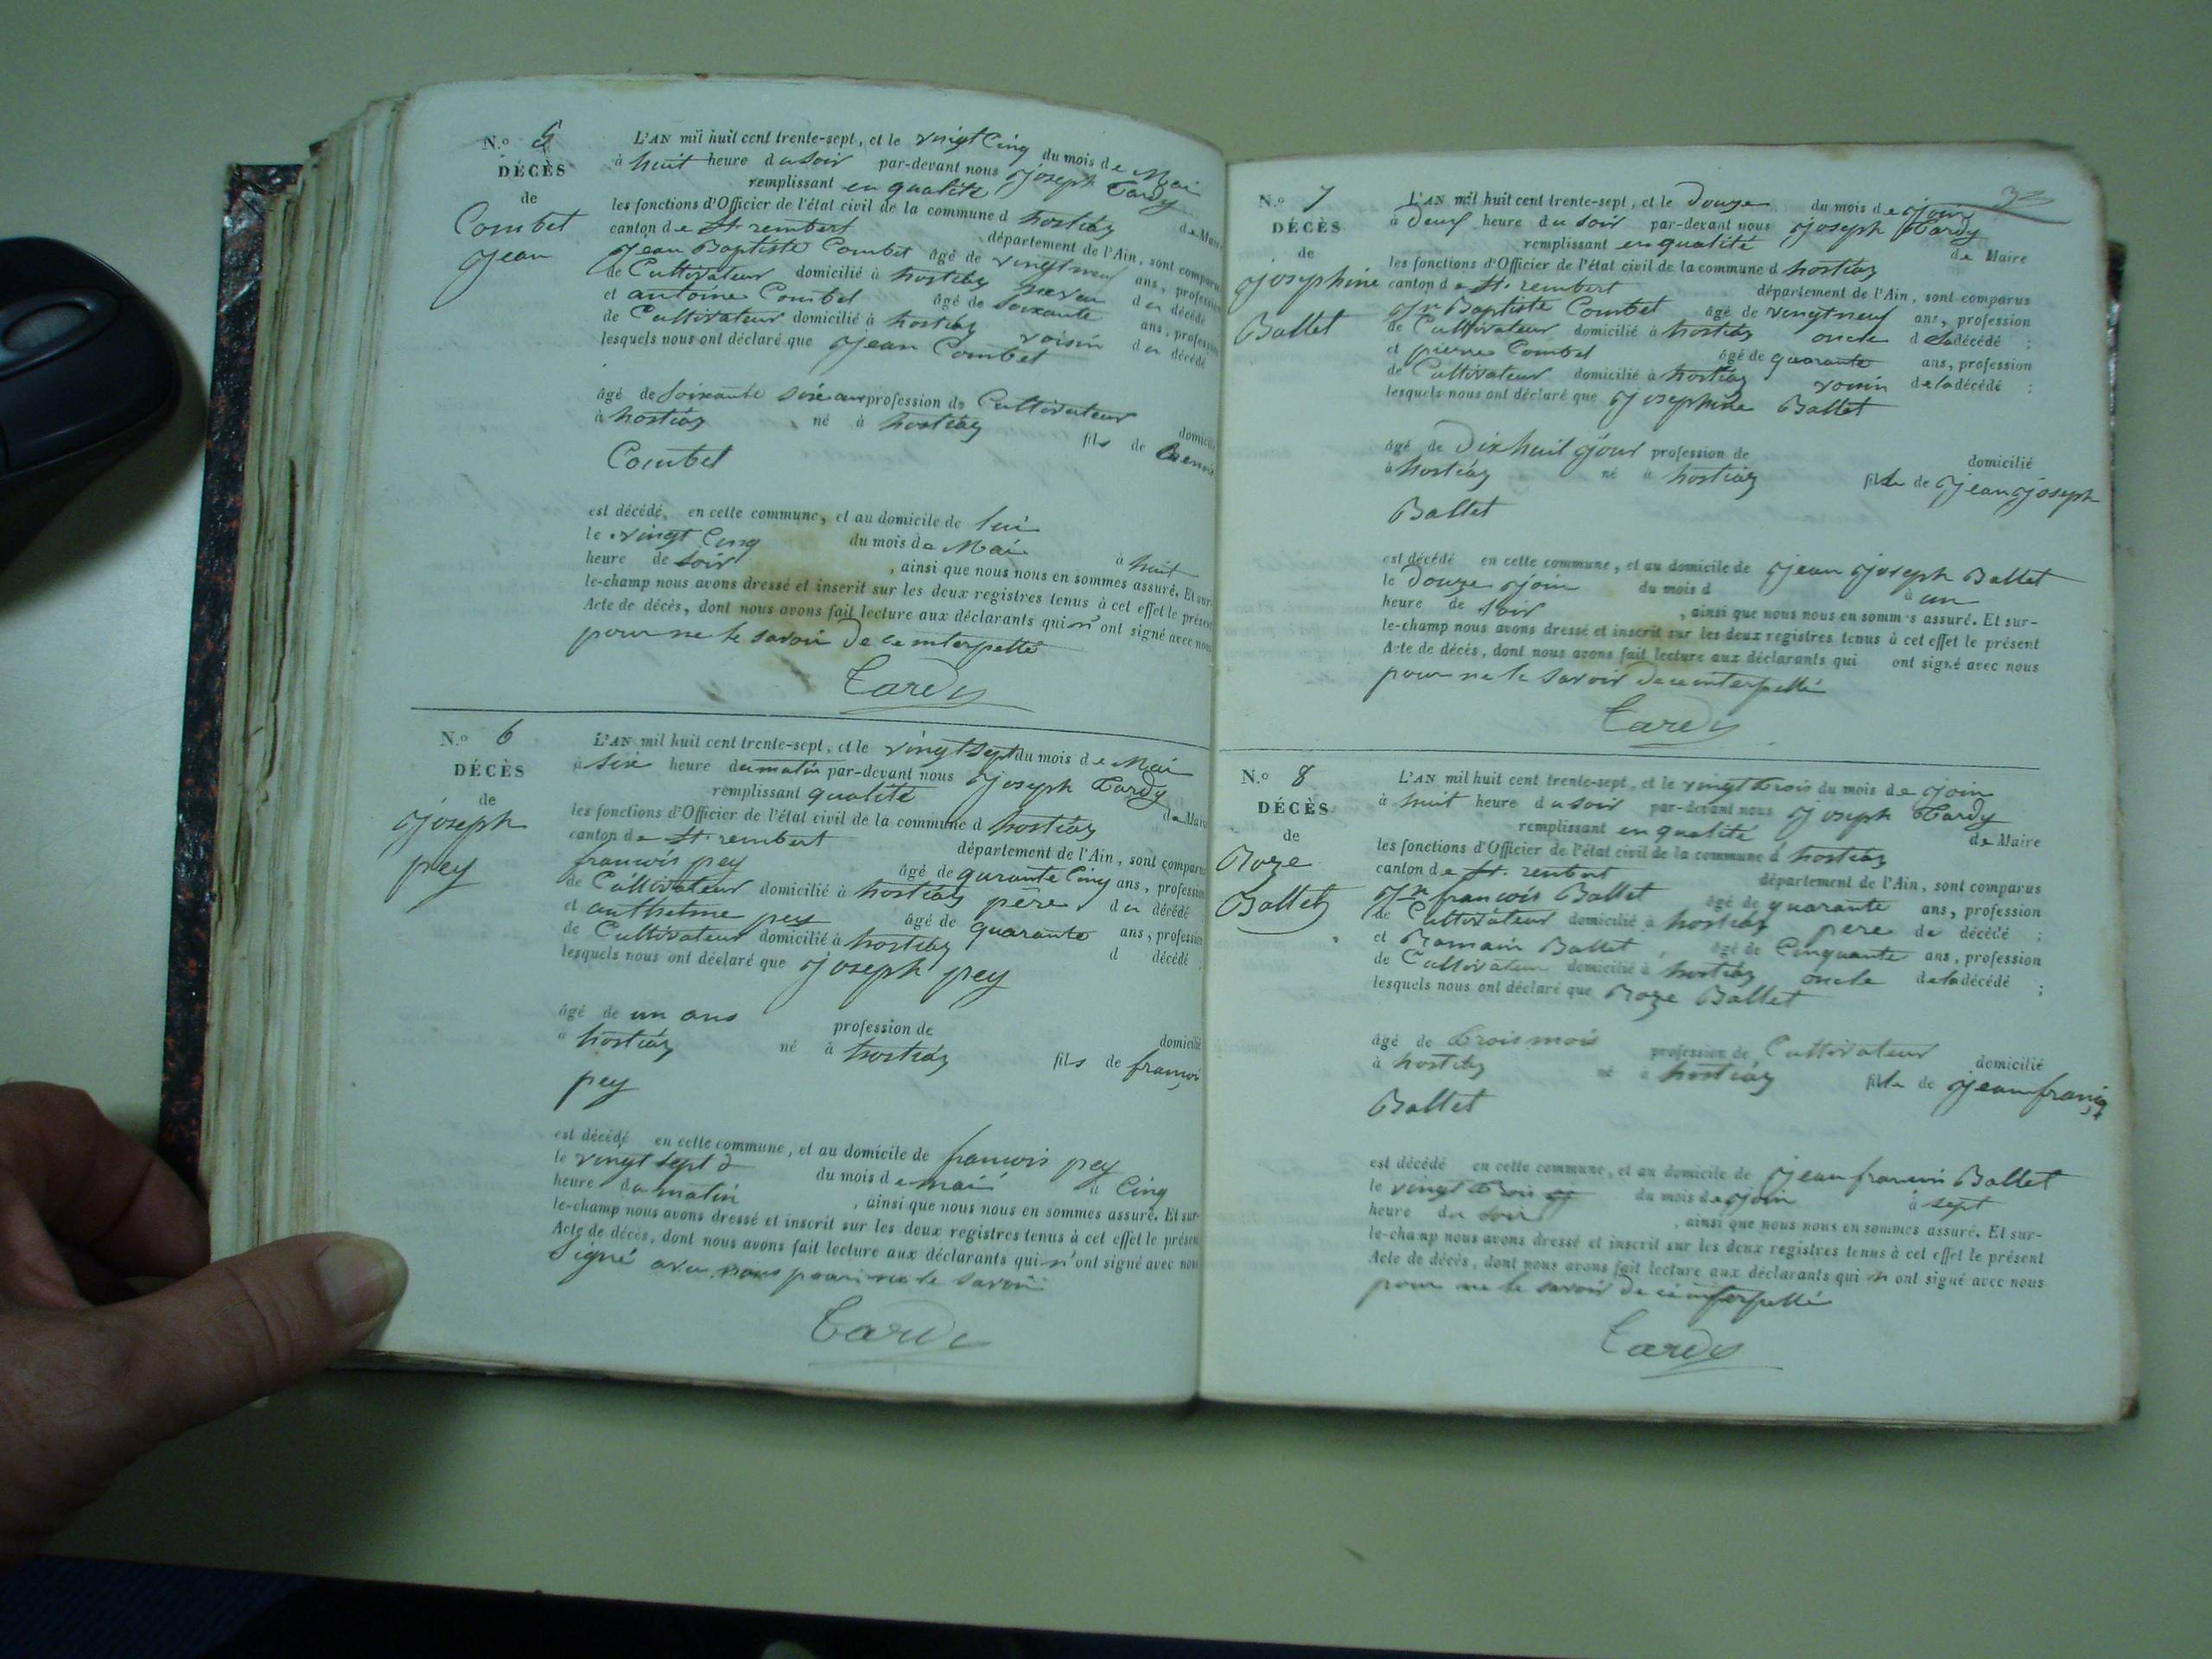 N.o 5
DÉCÈS
de
Combet
Jean
L'AN mil huit cent trente-sept, et le vingt Cinq du mois de Mai
à huit heure du soir par-devant nous Joseph Tardy
remplissant en qualité de Maire
les fonctions d'Officier de l'état civil de la commune d hostiaz
canton de St. rembert département de l'Ain, sont comparus
Jean Baptiste Combet âgé de vingt neuf ans, profession
de Cultivateur domicilié à hostiaz neveu du décédé
et antoine Combet âgé de soixante ans, profession
de Cultivateur domicilié à hostiaz voisin du décédé
lesquels nous ont déclaré que Jean Combet
âgé de soixante sixe ans profession de Cultivateur domicilié
à hostiaz né à hostiaz fils de
Combet
est décédé en cette commune, et au domicile de lui
le vingt Cinq du mois de Mai à huit
heure de soir, ainsi que nous nous en sommes assuré. Et sur-
le-champ nous avons dressé et inscrit sur les deux registres tenus à cet effet le présent
Acte de décès, dont nous avons fait lecture aux déclarants qui n' ont signé avec nous
pour ne le savoir de ce interpellé
Tardy
N.o 6
DÉCÈS
de
Joseph
pey
L'AN mil huit cent trente-sept, et le vingt sept du mois de Mai
à sixe heure du matin par-devant nous Joseph Tardy
remplissant qualité de Maire
les fonctions d'Officier de l'état civil de la commune d hostiaz
canton de St. rembert département de l'Ain, sont comparus
francois pey âgé de qurante Cinq ans, profession
de Cultivateur domicilié à hostiaz père du décédé
et anthelme pey âgé de quarante ans, profession
de Cultivateur domicilié à hostiaz d décédé
lesquels nous ont déclaré que Joseph pey
âgé de un ans profession de domicilié
à hostiaz né à hostiaz fils de françois
pey
est décédé en cette commune, et au domicile de francois pey
le vingt sept du mois de mai à Cinq
heure du matin, ainsi que nous nous en sommes assuré. Et sur-
le-champ nous avons dressé et inscrit sur les deux registres tenus à cet effet le présent
Acte de décès, dont nous avons fait lecture aux déclarants qui n' ont signé avec nous
Signé avec nous pour ne le savoir
Tardy
N.o 7
DÉCÈS
de
Josephine
Ballet
L'AN mil huit cent trente-sept, et le Douze du mois de Join
à Deux heure du soir par-devant nous Joseph Tardy
remplissant en qualité de Maire
les fonctions d'Officier de l'état civil de la commune d hostiaz
canton de St. rembert département de l'Ain, sont comparus
Jn Baptiste Combet âgé de vingt neuf ans, profession
de Cultivateur domicilié à hostiaz oncle de la décédé ;
et pierre Combet âgé de quarante ans, profession
de Cultivateur domicilié à hostiaz voisin de la décédé ;
lesquels nous ont déclaré que Josephine Ballet
âgé de Dix huit Jour profession de domicilié
à hostiaz né à hostiaz fille de Jean Joseph
Ballet
est décédé en cette commune, et au domicile de Jean Joseph Ballet
le Douze Join du mois d à un
heure de soir, ainsi que nous nous en sommes assuré. Et sur-
le-champ nous avons dressé et inscrit sur les deux registres tenus à cet effet le présent
Acte de décès, dont nous avons fait lecture aux déclarants qui ont signé avec nous
pour ne le savoir de ce interpellé
Tardy
N.o 8
DÉCÈS
de
Roze
Ballet
L'AN mil huit cent trente-sept, et le vingt trois du mois de Join
à huit heure du soir par-devant nous Joseph Tardy
remplissant en qualité de Maire
les fonctions d'Officier de l'état civil de la commune d hostiaz
canton de St. rembert département de l'Ain, sont comparus
Jn francois Ballet âgé de quarante ans, profession
de Cultivateur domicilié à hostiaz père de décédé ;
et Romain Ballet, âgé de Cinquante ans, profession
de Cultivateur domicilié à hostiaz oncle de la décédé ;
lesquels nous ont déclaré que Roze Ballet
âgé de trois mois profession de Cultivateur domicilié
à hostiaz né à hostiaz fille de Jean françois
Ballet
est décédé en cette commune, et au domicile de Jean francois Ballet
le vingt trois du mois de Join à sept
heure du soir, ainsi que nous nous en sommes assuré. Et sur-
le-champ nous avons dressé et inscrit sur les deux registres tenus à cet effet le présent
Acte de décès, dont nous avons fait lecture aux déclarants qui n ont signé avec nous
pour ne le savoir de ce interpellé
Tardy